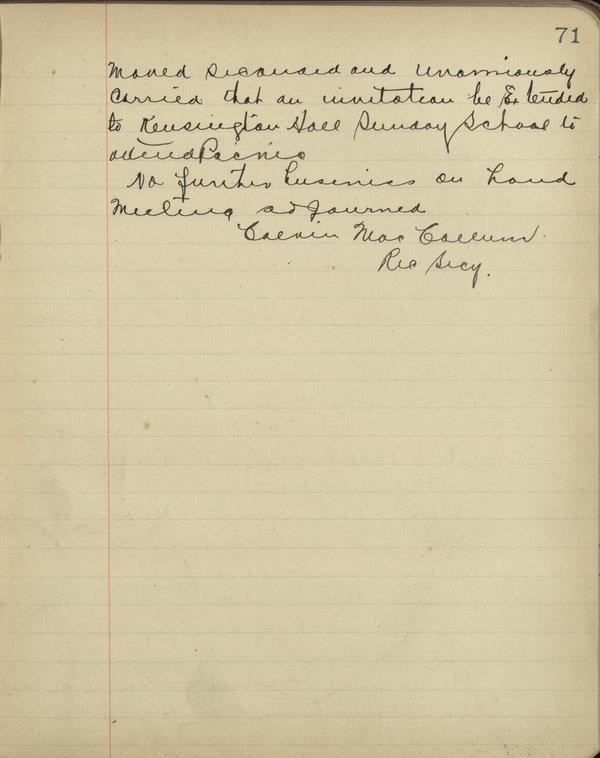 71
Moved seconded and unamiously
Carried that an invitation be Extended
to Kensington Hall Sunday School to
attend Picnic
No further business on hand
Meeting adjourned
Calvin Mac Callum.
Rec Secy.